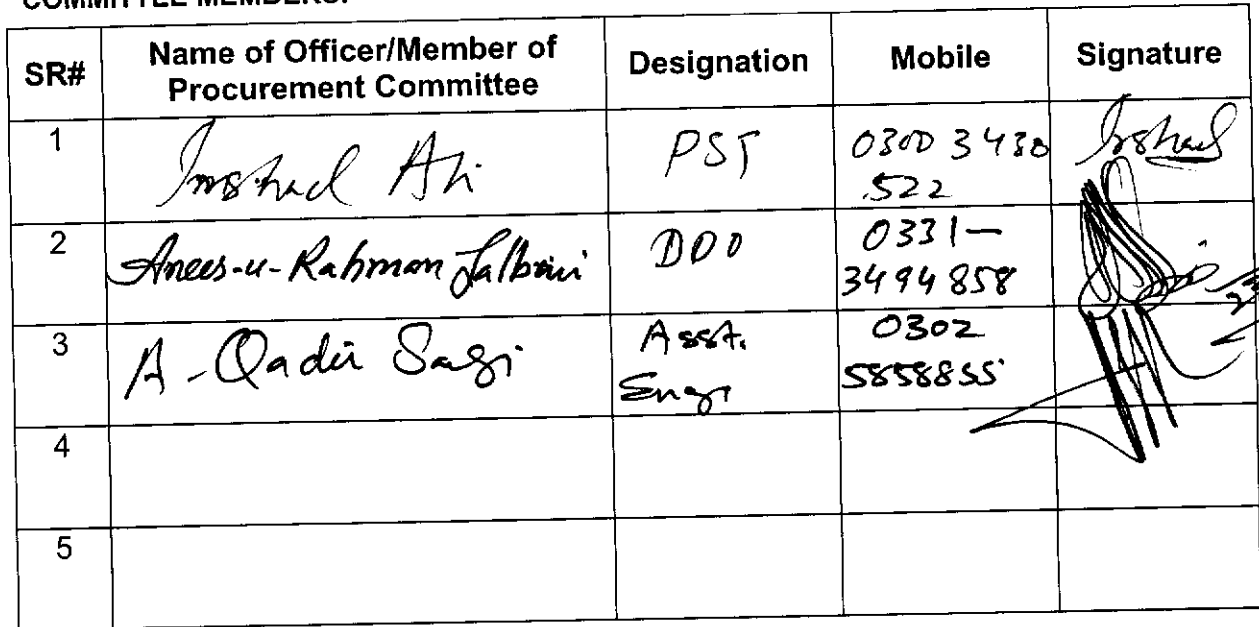 COMMITTEE MEMBERS:
SR# Name of Officer/Member of Procurement Committee Designation Mobile Signature
1 Ali PST 0300 3430 522
2 Anees-u-Rahman Jalbani DDO 0331- 3494858
3 A-Qadir Asst. Engr 0302 5858855
4
5